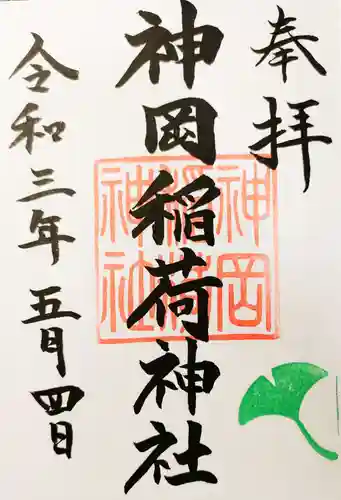 奉拝
神岡稲荷神社
神岡
稲荷
神社
令和三年五月四日